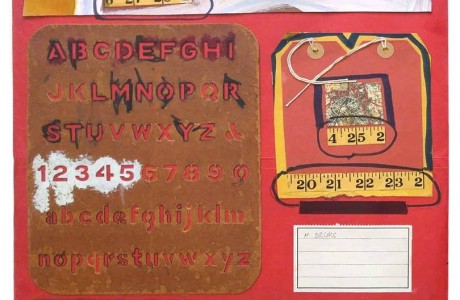 6 27 28
ABCDEFGHI
JKLMNOPQR
STUVWXYZ &
1234567890
abcdefghijklm
nopqrstuvwxyz
4 25 2
20 21 22 23 2